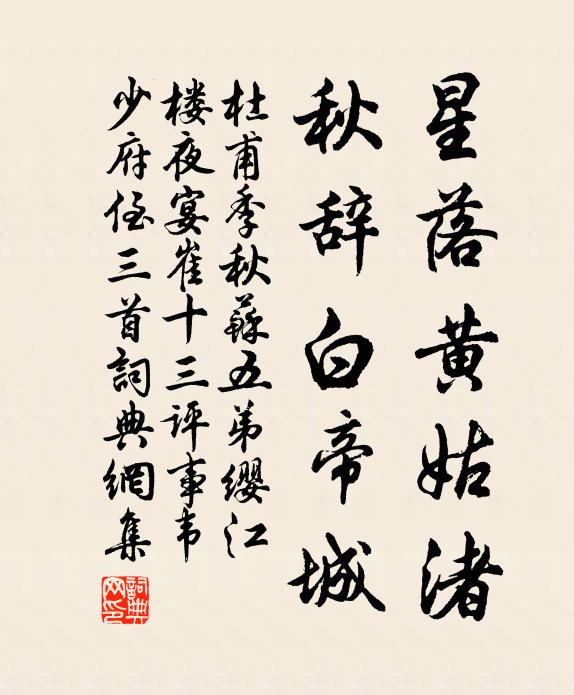 星落黄姑渚
秋辞白帝城
杜甫季秋蘇五弟缨江
楼夜宴崔十三评事韦
少府侄三首詞典網集
詞典网印